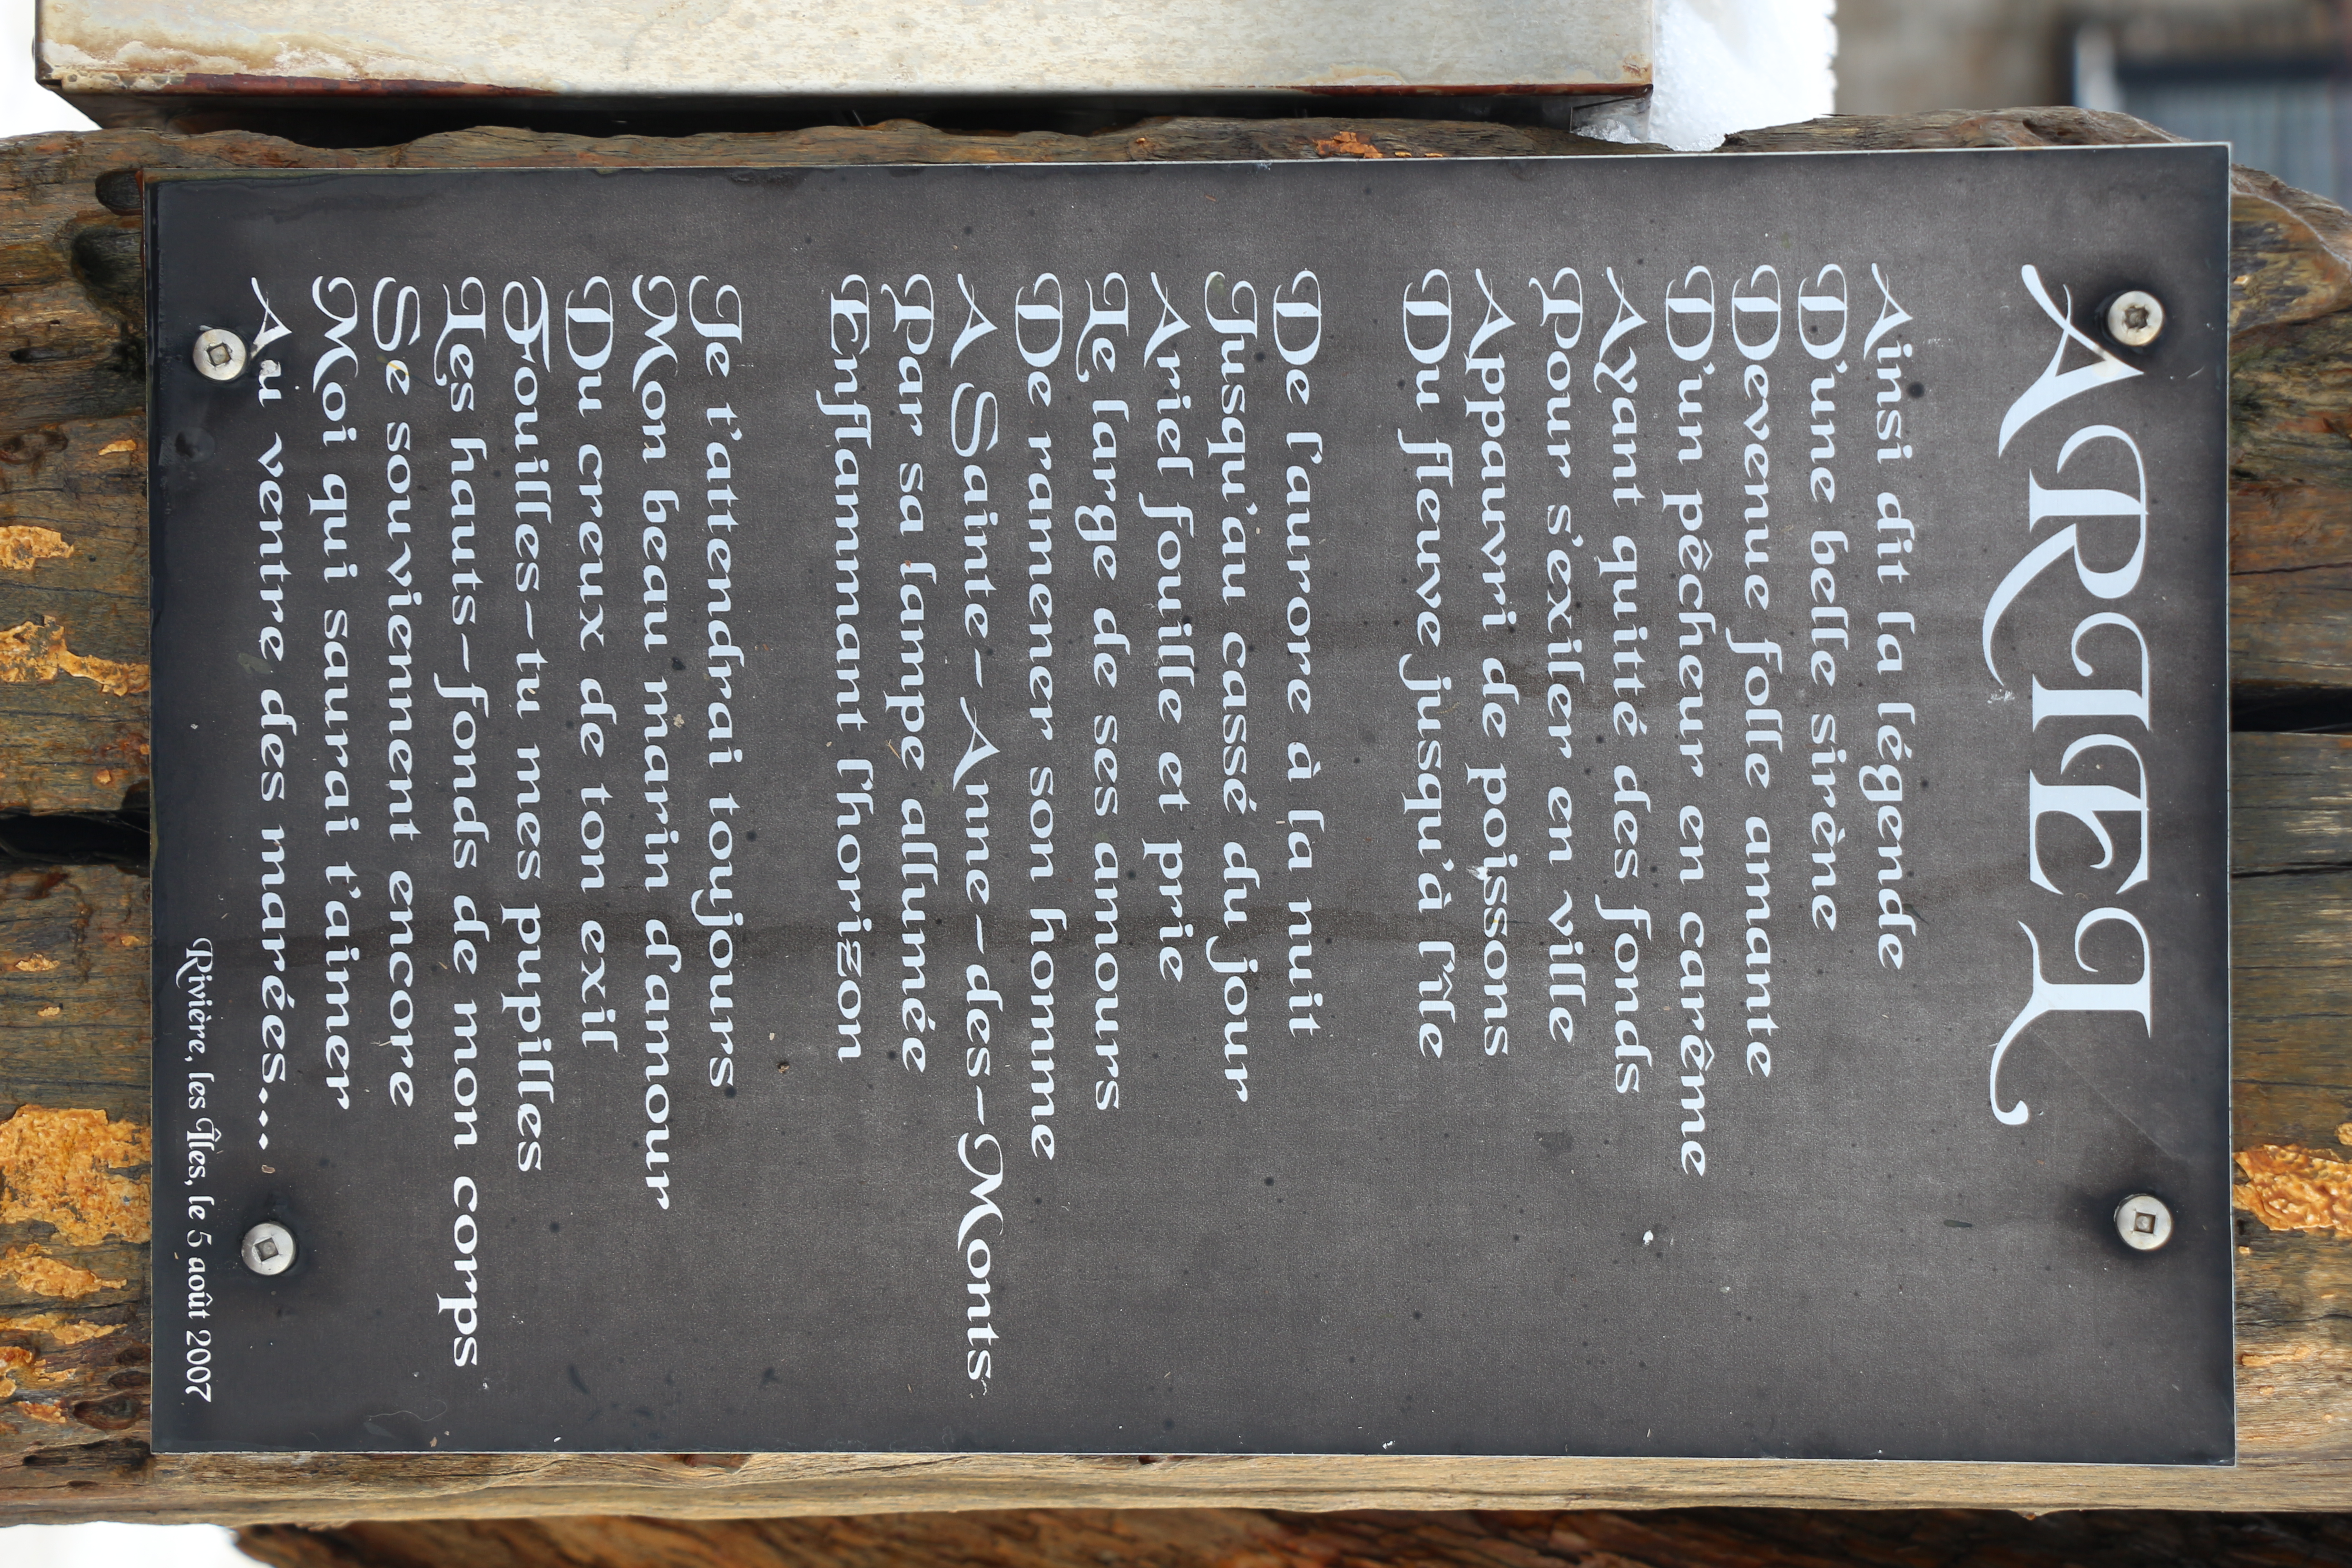 ARIEL
Ainsi dit la légende
D'une belle sirène
Devenue folle amante
D'un pêcheur en carême
Ayant quitté des fonds
Pour s'exiler en ville
Appauvri de poissons
Du fleuve jusqu'à l'île
De l'aurore à la nuit
Jusqu'au cassé du jour
Ariel fouille et prie
Le large de ses amours
De ramener son homme
A Sainte-Anne-des-Monts
Par sa lampe allumée
Enflammant l'horizon
Je t'attendrai toujours
Mon beau marin d'amour
Du creux de ton exil
Fouilles-tu mes pupilles
Les hauts-fonds de mon corps
Se souviennent encore
Moi qui saurai t'aimer
Au ventre des marées...
Rivière, les Îles, le 5 août 2007